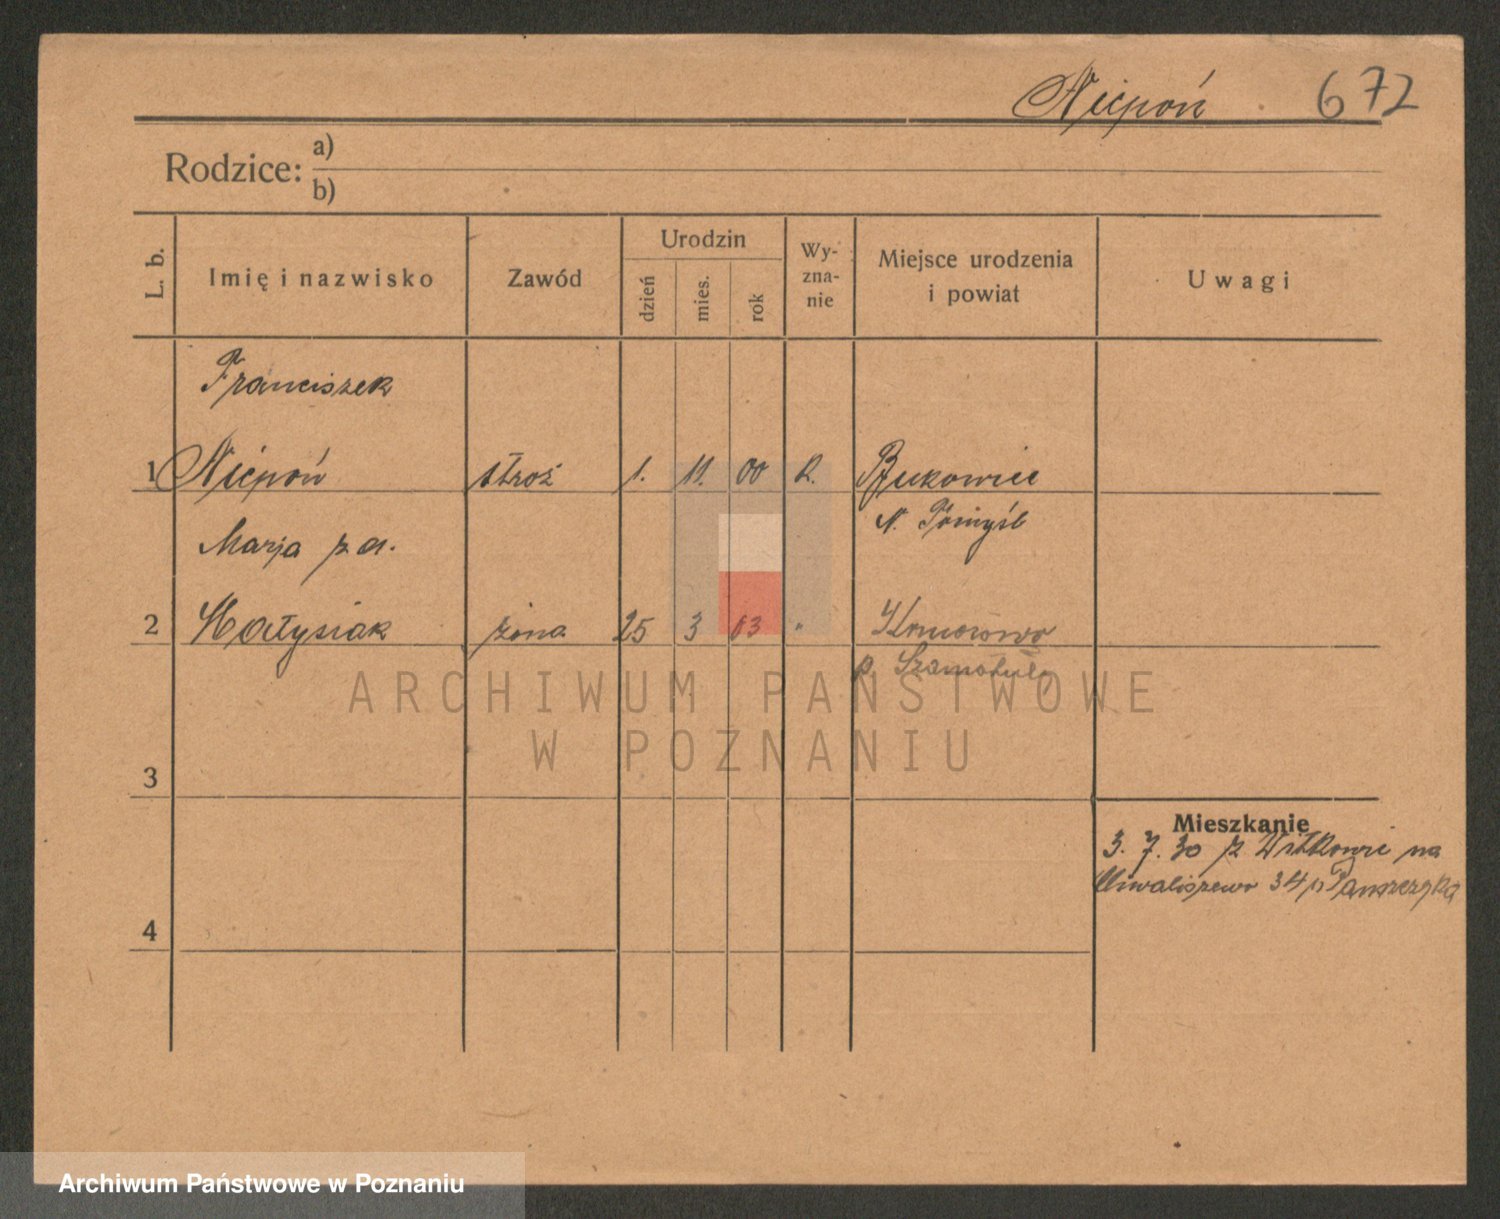 Nicpoń 672
Rodzice: a)
b)
L. b.
Imię i nazwisko
Zawód
Urodzin
dzień
mies.
rok
Wy-
zna-
nie
Miejsce urodzenia
i powiat
Uwagi
Franciszek
1 Nicpoń stróż 1. 11. 00 R. Bukowiec
N. Tomyśl
Marja z d.
2 Hołysiak żona 25 3 03 " Komorowo
p. Szamotuły
3
Mieszkanie
3. 7. 30 z Witkowic na
Chwaliszewo 34 p.
4
ARCHIWUM PAŃSTWOWE
W POZNANIU
Archiwum Państwowe w Poznaniu